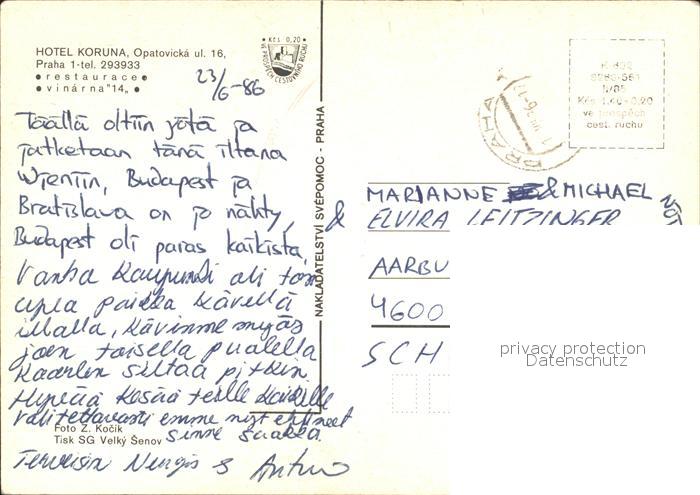 HOTEL KORUNA, Opatovická ul. 16,
Praha 1-tel. 293933
restaurace
vinárna "14„
Kčs 0,20
VE PROSPĚCH CESTOVNÍHO RUCHU
23/6-86
Täällä oltiin yötä ja
jatketaan tänä iltana
Wieniin, Budapest ja
Bratislava on jo nähty,
Budapest oli paras kaikista,
Vanha Kaupunki oli
paikka kävellä
illalla, kävimme myös
joen toisella puolella
Kaarlen siltaa pitkin
Hyvää kesää teille kaikille
valitettavasti emme nyt ehtineet
sinne saakka.
Terveisin
NAKLADATELSTVÍ SVÉPOMOC - PRAHA
Foto Z. Kočík
Tisk SG Velký Šenov
PRAHA
Kčs 1,40+0,20
ve prospěch
cest. ruchu
MARIANNE & MICHAEL
& ELVIRA LEITZINGER
AARBU
4600
SCH
privacy protection
Datenschutz